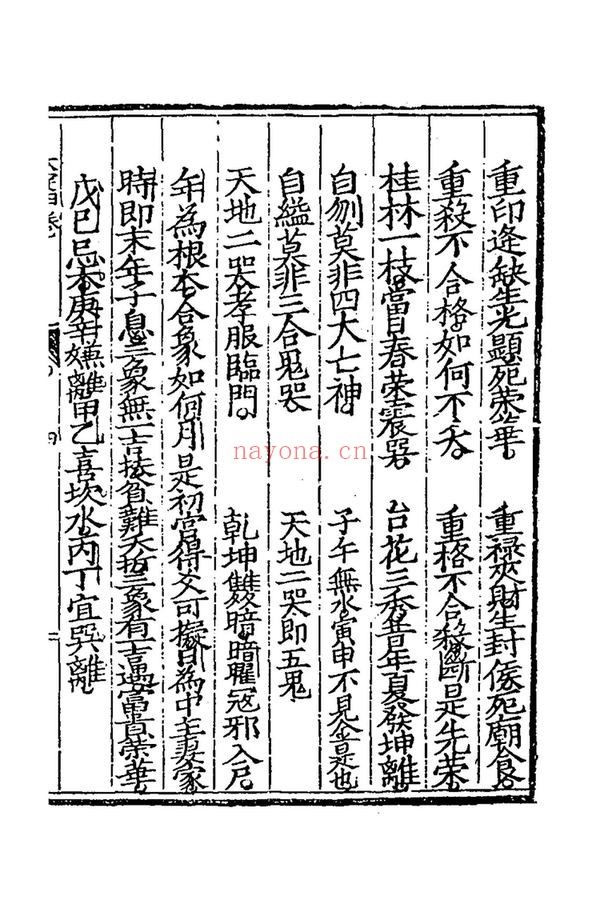 重印逢缺生光顯死榮華　重禄夾財生封侯死廟食
重殺不合格如何不夭　重格不合殺斷是先榮
桂林一枝當春榮震器　台花三秀昔年夏發坤離
自刎莫非四大亡神　子午無水寅申不見金是也
自縊莫非三合鬼哭　天地二哭即五鬼
天地二哭孝服臨門　乾坤雙暗暗曜冦邪入户
年為根本合象如何月是初官得文可擬日為中主妻家
時即末年子息三象無吉扶負難夭三象有吉富貴榮華
戊巳忌本庚辛嫌離甲乙喜坎水丙丁宜巽離
nayona.cn